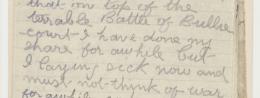 that on top of the
terrable Battle of Bullie
court I have done my
share for awhile but
I being sick now and
must not think of war
for awhile